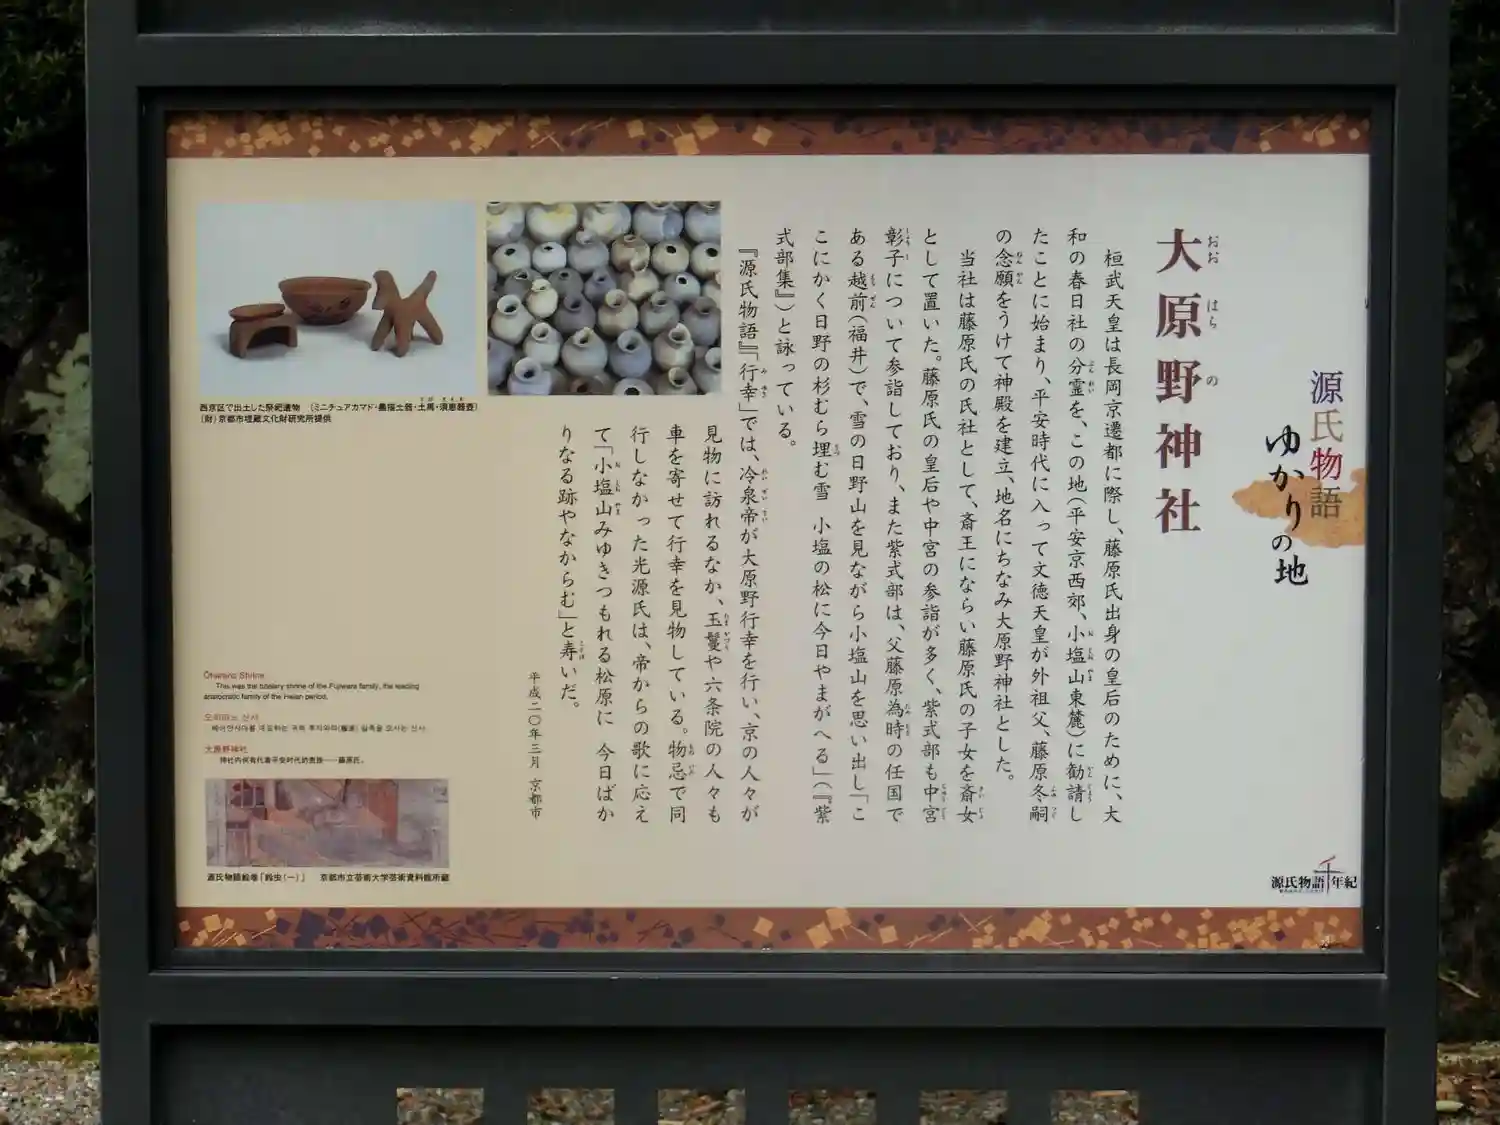 源氏物語
ゆかりの地
大原野神社
おお はら の
桓武天皇は長岡京遷都に際し、藤原氏出身の皇后のために、大
和の春日社の分霊を、この地（平安京西郊、小塩山東麓）に勧請し
たことに始まり、平安時代に入って文徳天皇が外祖父、藤原冬嗣
の念願をうけて神殿を建立、地名にちなみ大原野神社とした。
当社は藤原氏の氏社として、斎王にならい藤原氏の子女を斎女
として置いた。藤原氏の皇后や中宮の参詣が多く、紫式部も中宮
彰子について参詣しており、また紫式部は、父藤原為時の任国で
ある越前（福井）で、雪の日野山を見ながら小塩山を思い出し「こ
こにかく日野の杉むら埋む雪 小塩の松に今日やまがへる」（『紫
式部集』）と詠っている。
『源氏物語』「行幸」では、冷泉帝が大原野行幸を行い、京の人々が
見物に訪れるなか、玉鬘や六条院の人々も
車を寄せて行幸を見物している。物忌で同
行しなかった光源氏は、帝からの歌に応え
て「小塩山みゆきつもれる松原に 今日ばか
りなる跡やなからむ」と寿いだ。
平成二〇年三月 京都市
西京区で出土した祭祀遺物 （ミニチュアカマド・墨描土器・土馬・須恵器壺）
（財）京都市埋蔵文化財研究所提供
Oharano Shrine
This was the tutelary shrine of the Fujiwara family, the leading
aristocratic family of the Heian period.
오하라노 신사
大原野神社
源氏物語絵巻「鈴虫（一）」 京都市立芸術大学芸術資料館所蔵
源氏物語千年紀